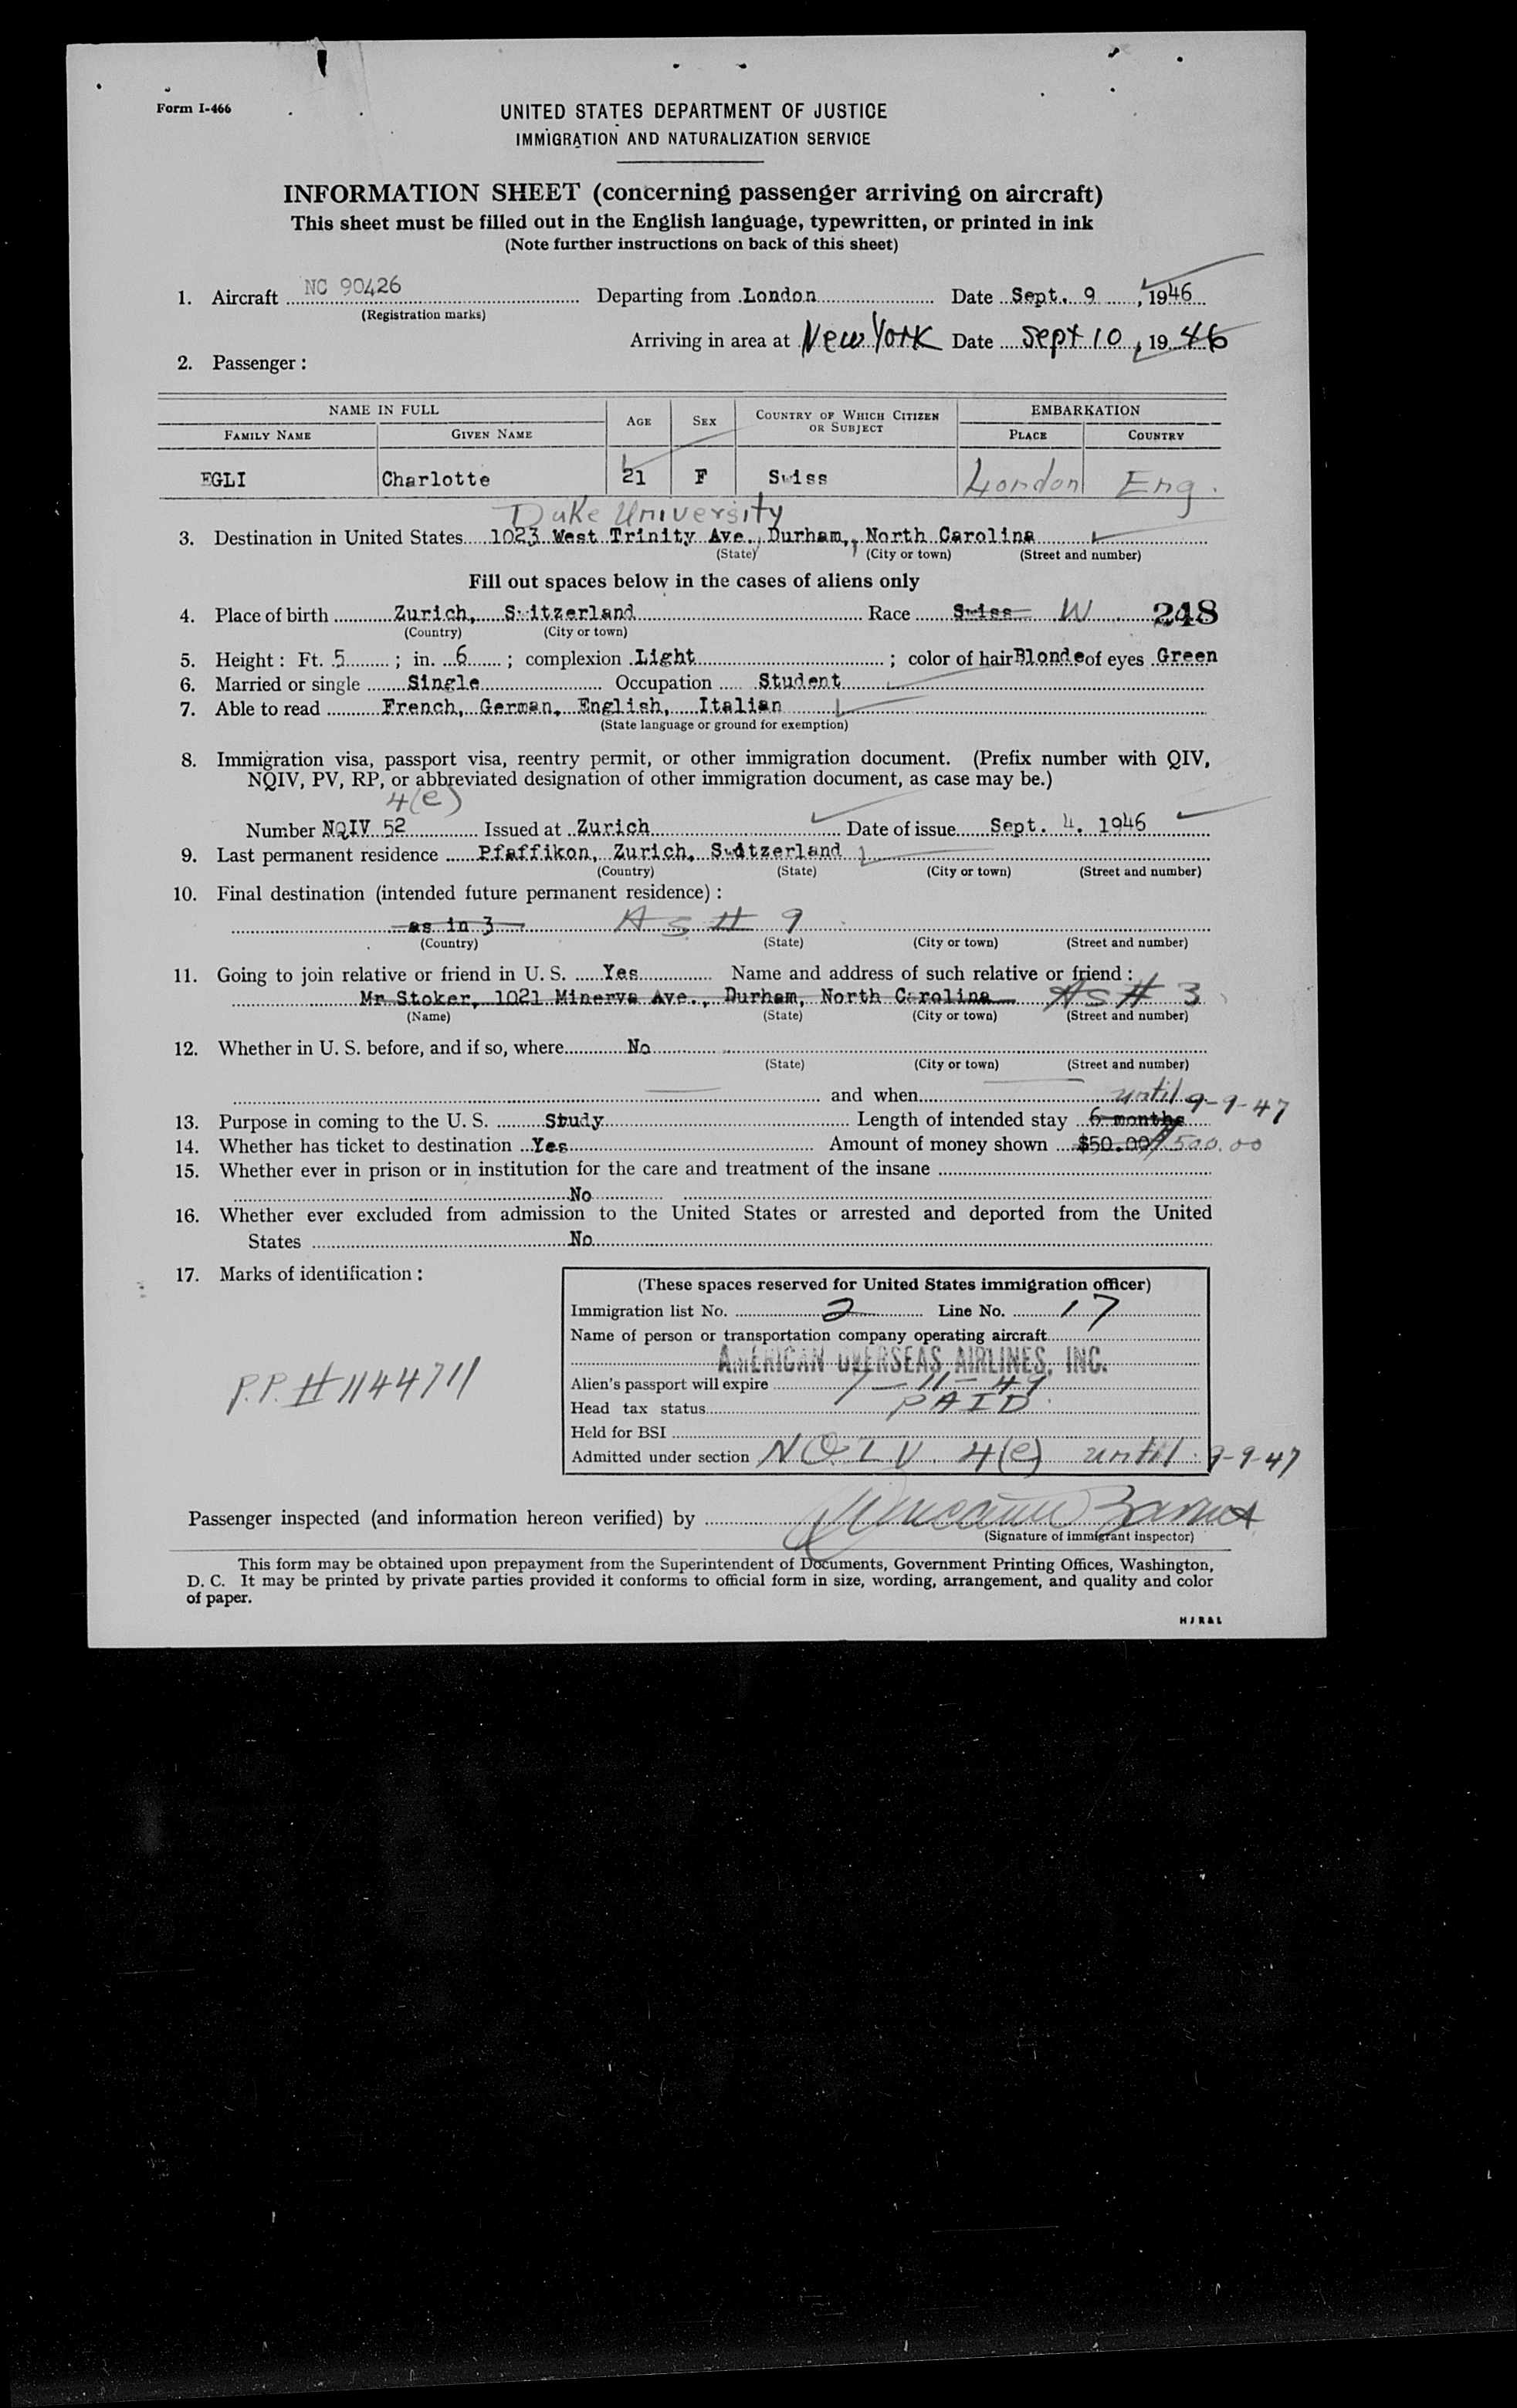 Form I-466
UNITED STATES DEPARTMENT OF JUSTICE
IMMIGRATION AND NATURALIZATION SERVICE
INFORMATION SHEET (concerning passenger arriving on aircraft)
This sheet must be filled out in the English language, typewritten, or printed in ink
(Note further instructions on back of this sheet)
1. Aircraft NC 90426 Departing from London Date Sept. 9, 1946
(Registration marks)
Arriving in area at New York Date Sept 10, 1946
2. Passenger:
NAME IN FULL AGE SEX COUNTRY OF WHICH CITIZEN OR SUBJECT EMBARKATION
FAMILY NAME GIVEN NAME PLACE COUNTRY
EGLI Charlotte 21 F Swiss London Eng.
Duke University
3. Destination in United States 1023 West Trinity Ave., Durham, North Carolina
(State) (City or town) (Street and number)
Fill out spaces below in the cases of aliens only
4. Place of birth Zurich, Switzerland Race Swiss W 248
(Country) (City or town)
5. Height: Ft. 5; in. 6; complexion Light; color of hair Blonde of eyes Green
6. Married or single Single Occupation Student
7. Able to read French, German, English, Italian
(State language or ground for exemption)
8. Immigration visa, passport visa, reentry permit, or other immigration document. (Prefix number with QIV,
NQIV, PV, RP, or abbreviated designation of other immigration document, as case may be.)
4(e)
Number NQIV 52 Issued at Zurich Date of issue Sept. 4. 1946
9. Last permanent residence Pfaffikon, Zurich, Switzerland
(Country) (State) (City or town) (Street and number)
10. Final destination (intended future permanent residence):
as in 3 As # 9
(Country) (State) (City or town) (Street and number)
11. Going to join relative or friend in U. S. Yes Name and address of such relative or friend:
Mr Stoker, 1021 Minerva Ave., Durham, North Carolina As # 3
(Name) (State) (City or town) (Street and number)
12. Whether in U. S. before, and if so, where No
(State) (City or town) (Street and number)
and when until 9-9-47
13. Purpose in coming to the U. S. Study Length of intended stay 6 months
14. Whether has ticket to destination Yes Amount of money shown $50.00 500.00
15. Whether ever in prison or in institution for the care and treatment of the insane
No
16. Whether ever excluded from admission to the United States or arrested and deported from the United
States No
17. Marks of identification:
(These spaces reserved for United States immigration officer)
Immigration list No. 2 Line No. 17
Name of person or transportation company operating aircraft
AMERICAN OVERSEAS AIRLINES, INC.
Alien's passport will expire 7-11-49
P.P. # 1144711
Head tax status PAID
Held for BSI
Admitted under section N.Q.I.V. 4(e) until 9-9-47
Passenger inspected (and information hereon verified) by
(Signature of immigrant inspector)
This form may be obtained upon prepayment from the Superintendent of Documents, Government Printing Offices, Washington,
D. C. It may be printed by private parties provided it conforms to official form in size, wording, arrangement, and quality and color
of paper.
HJR&L